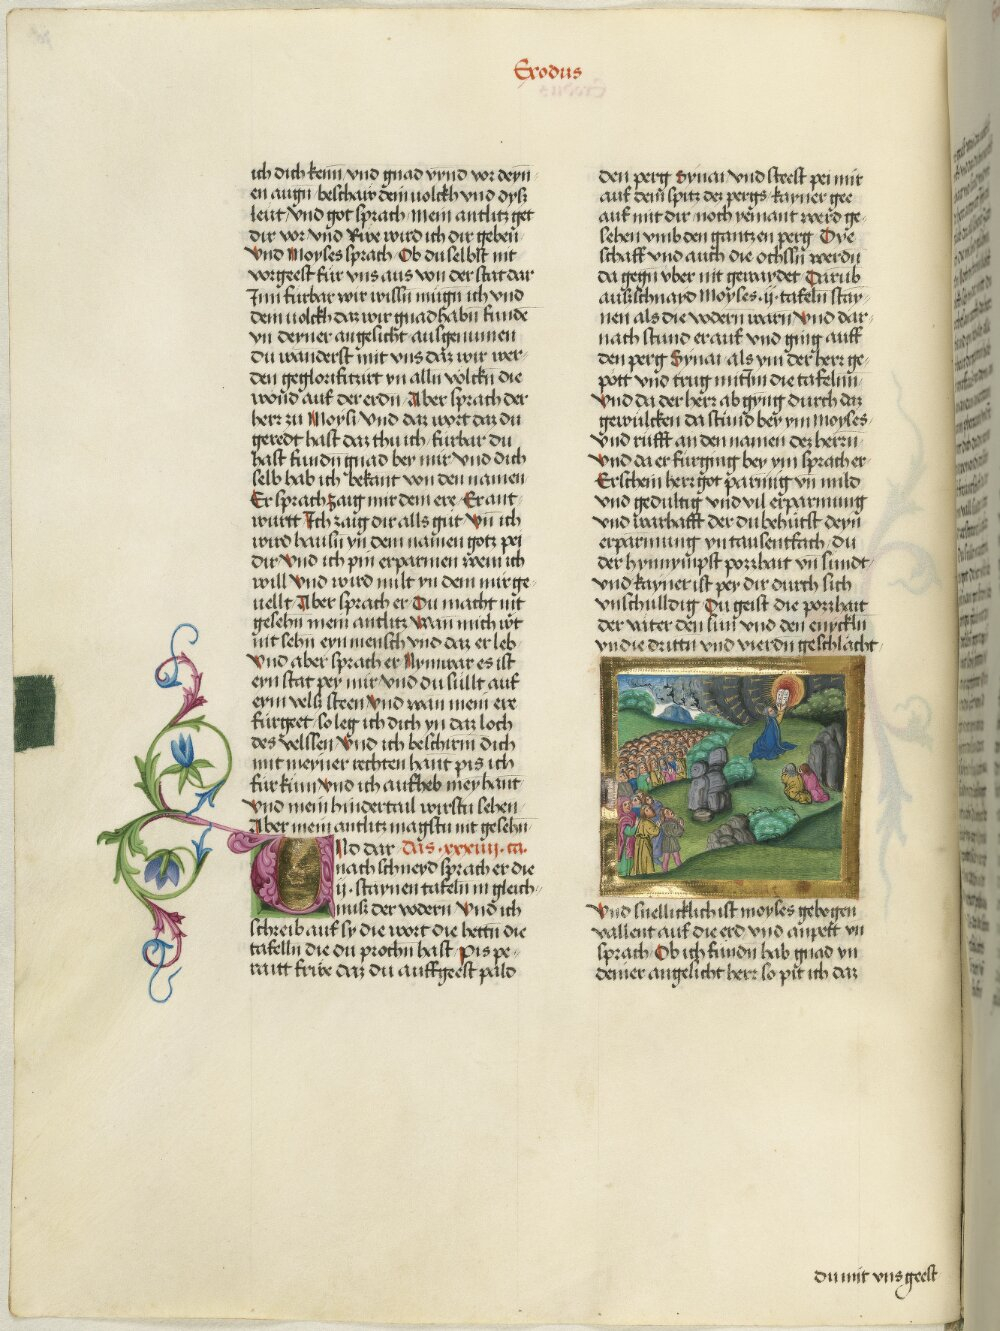 Exodus
ich dich kenn vnd gnad vynd vor deyn
en augn beschaw dein volckh vnd dyß
leut Vnd got sprach Mein antlitz get
dir vor vnd Rwe wird ich dir geben
Vnd Moyses sprach Ob du selbst nit
vorgeest für vns aus von der stat dar
Inn fürbar wir wissn mügn ich vnd
dem volckh daz wir gnad habn funde
yn deyner angesicht ausgenumen
Du wanderst mit vns daz wir wer
den geglorifitzirt yn alln völckn die
wond auf der erdn Aber sprach der
herr zu Moysi Vnd daz wort daz du
geredt hast daz thu ich fürbar du
hast fundn gnad bey mir vnd dich
selb hab ich bekant von den namen
Er sprach zaig mir dein ere Er ant
wurtt Ich zaig dir alls gut Vn ich
wird haisn yn dem namen gotz pei
dir Vnd ich pin erparmen wem ich
will Vnd wird milt yn dem mir ge
uellt Aber sprach er Du macht nit
gesehn mein antlitz Wan mich wt
nit sehn eyn mensch vnd daz er leb
Vnd aber sprach er Nymwar es ist
eyn stat pey mir Vnd du süllt auf
eym velß steen Vnd wan mein ere
fürgeet so leg ich dich yn daz loch
des velssen Vnd ich beschirm dich
mit meyner rechten hant pis ich
für kum Vnd ich aufheb mey hant
Vnd mein hindertail wirstu sehen
Aber mein antlitz magstu nit gesehn
Nd dar das xxxiiij ca
nach schneyd sprach er die
ij staynen tafeln in gleich
nuß der vodern Vnd ich
schreib auf sy die wort die hettn die
tafelln die du prochn hast Pis pe
raitt frwe daz du auffgeest pald
den perg Synai Vnd steest pei mir
auf dem spitz dez pergs kayner gee
auf mit dir noch yemant werd ge
sehen vmb den gantzen perg Dye
schaff vnd auch die ochssn werdn
da gegn vber nit gewaydet Darub
aufzschnayd Moyses ij tafeln stay
nen als die vodern warn Vnd dar
nach stund er auf vnd ging auff
den perg Synai als ym der herr ge
pott vnd trug mit im die tafelnn
Vnd da der herr ab gyng durch daz
gewulcken da stund bey ym moyses
Vnd rüfft an den namen dez herrn
Vnd da er fürging bey ym sprach er
Erschein herr got parmig vn mild
vnd gedultig vnd vil erparmung
vnd warhafft der du behütst deyn
erparmung yn tausentfach du
der hynnympst pozzhait vn sundt
vnd kayner ist pey dir durch sich
vnschulldig Du geist die pozzhait
der väter den sün vnd den enyckln
yn die drittn vnd vierdn geschlächt
Vnd snellicklich ist moyses gebogen
vallent auf die erd vnd anpett vn
sprach Ob ich fundn hab gnad yn
deiner angesicht herr so pit ich daz
du mit vns geest